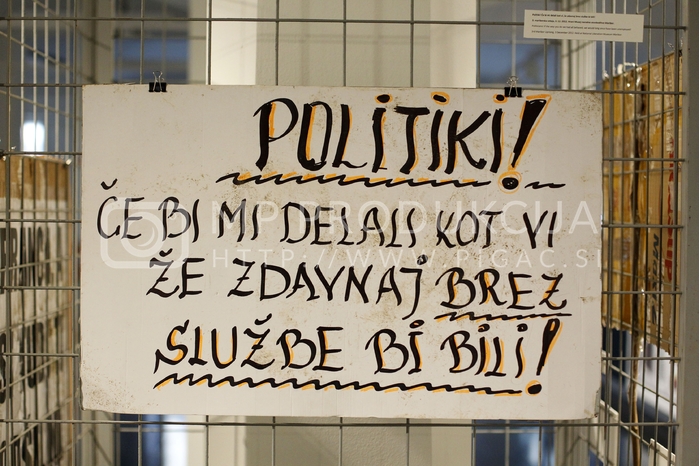 POLITIKI!
ČE BI MI DELALI KOT VI
ŽE ZDAVNAJ BREZ
SLUŽBE BI BILI!
M PRODUKCIJA
HTTP://WWW.PIGAC.SI